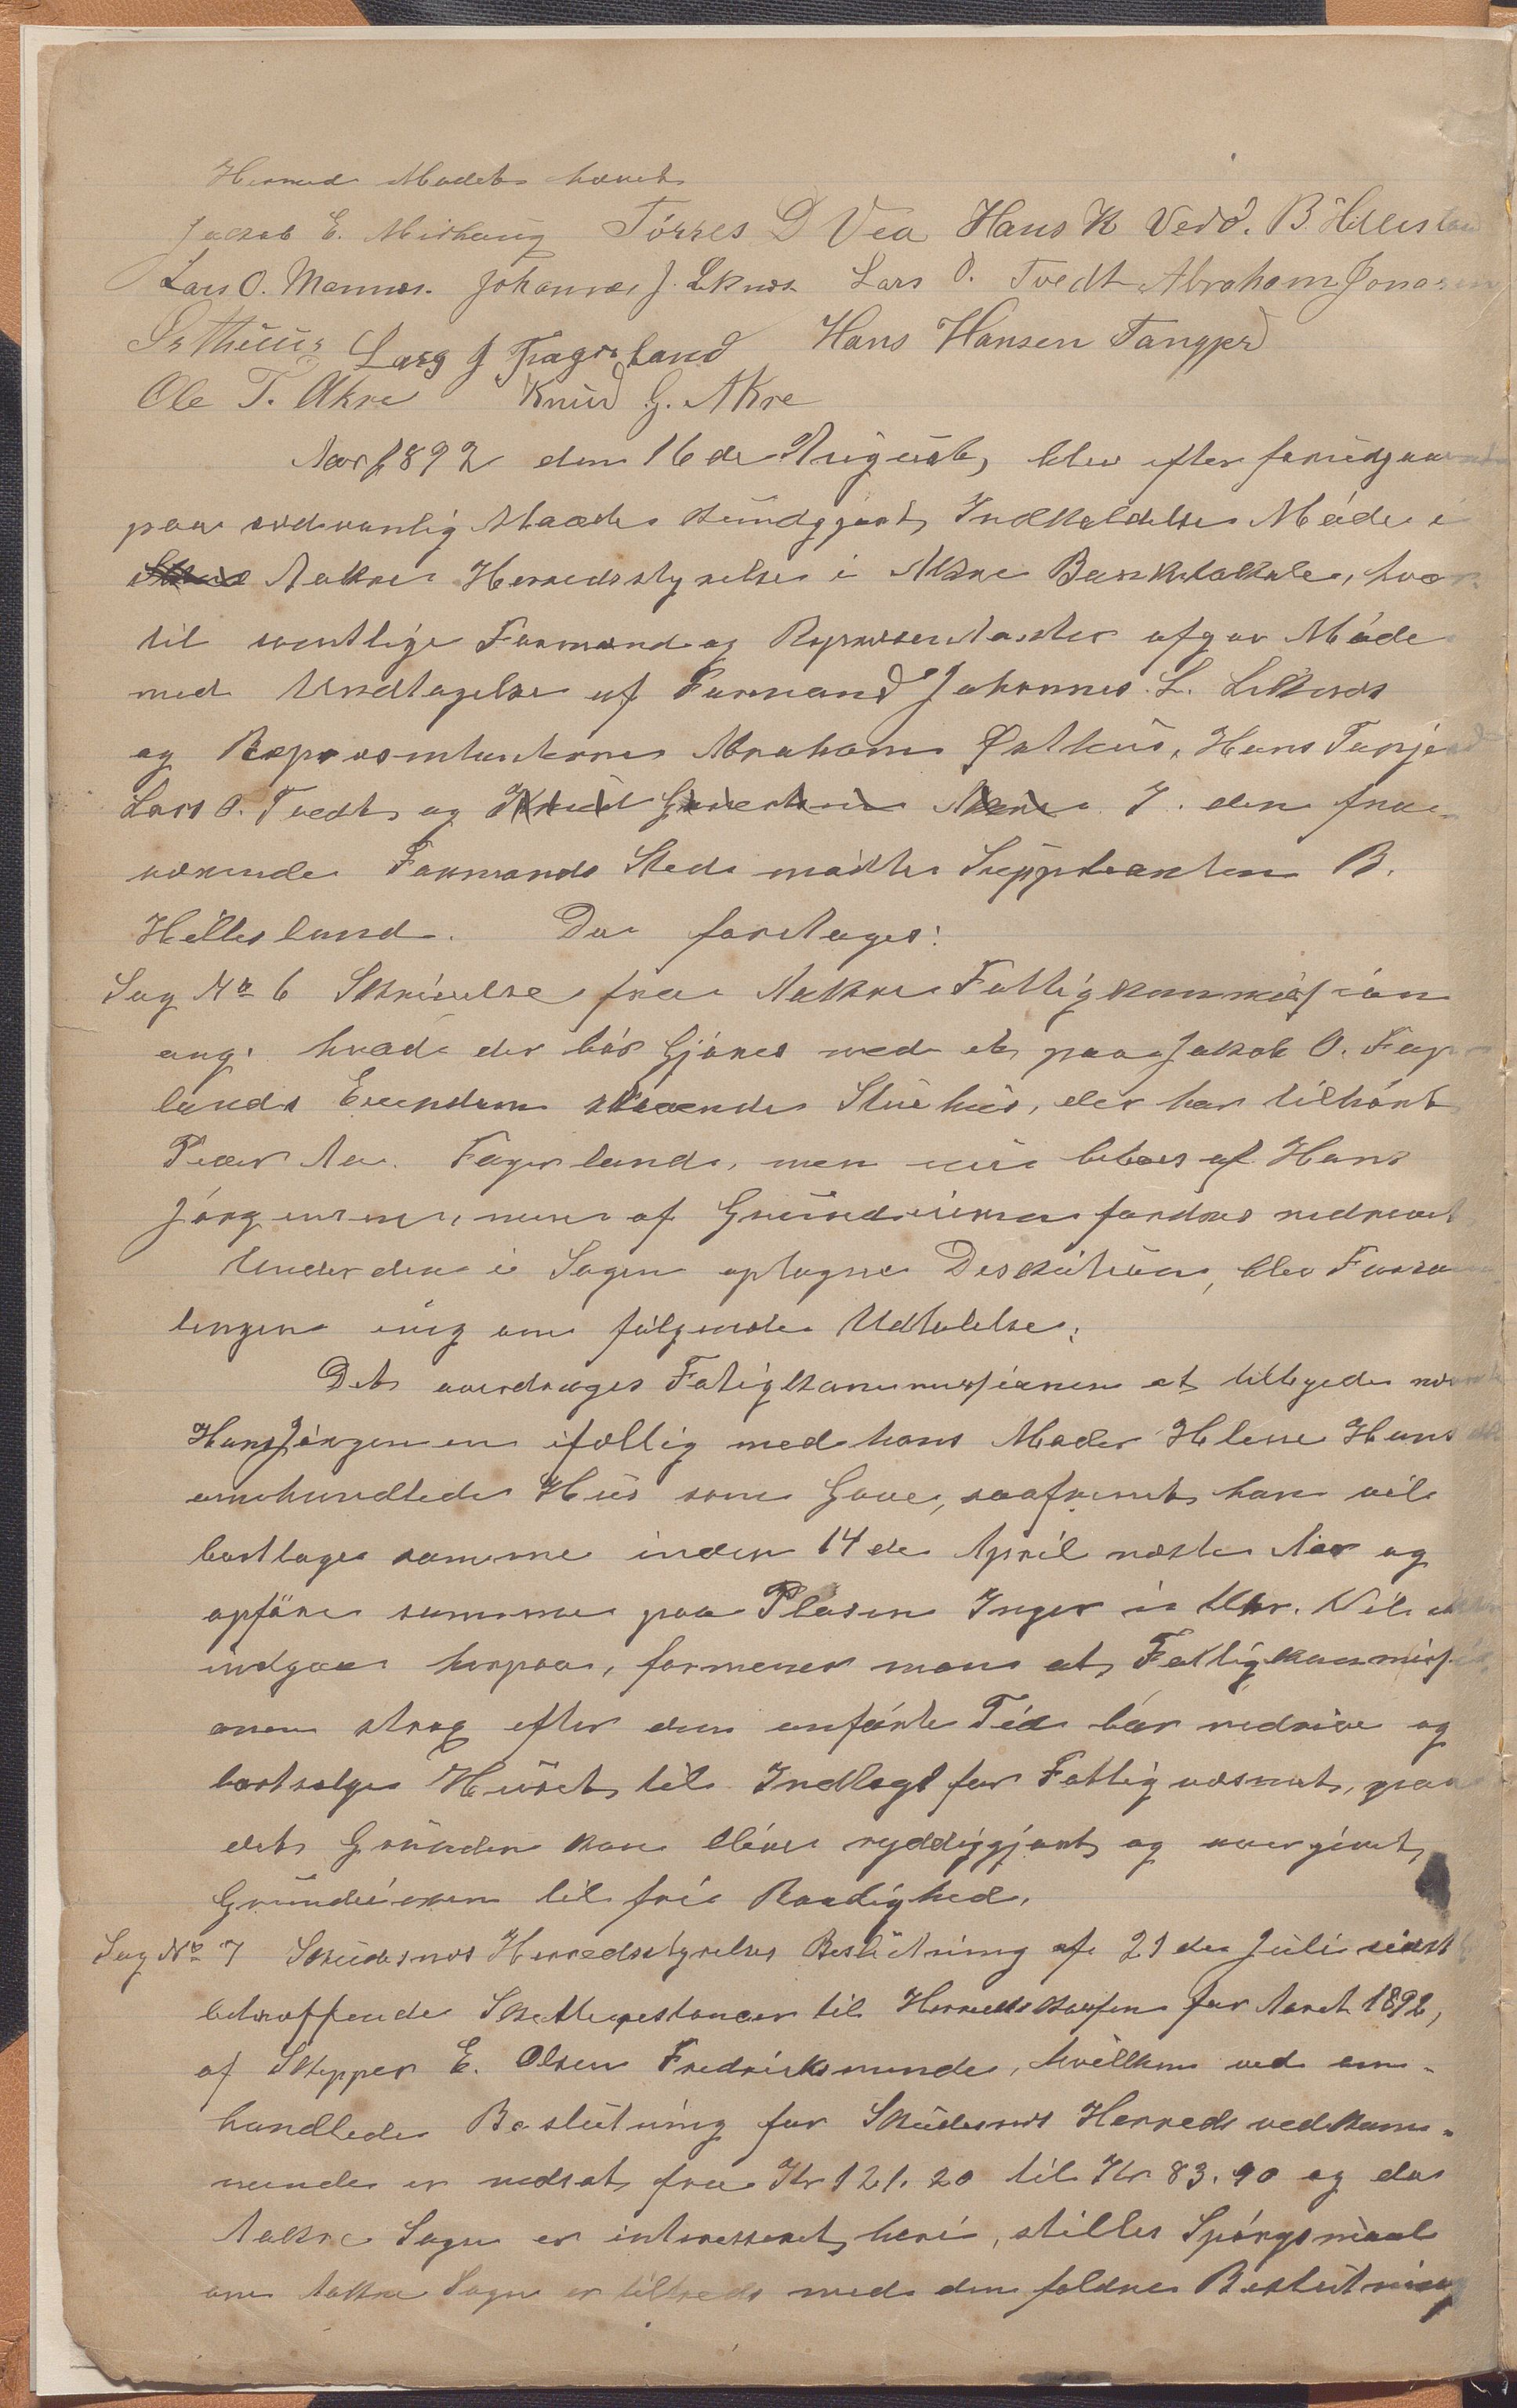 Hermed Mødet hævet
Jacob E. Mirhaug Törres D Vea Hans K Vedö. B. Hillesland
Lars O. Mannes. Johannes J. Eknes Lars O. Tvedt Abraham Jonasen
Lars J Fagerland Hans Hansen Tangjerd
Ole T. Akre Knud G. Akre
Aar 1892 den 16de August, blev efter forudgaaende
paa sedvanlig Maade kundgjort Indkaldelse Møde i
Aakre Herredsstyrelse i Akre Banklokale, hvor-
til samtlige Formænd og Repræsentanter afgav Møde
med Undtagelse af Formand Johannes L. Liknes
og Repræsentanterne Abraham Østhus, Hans Tangjerd
Lars O. Tvedt og Knud Gudmundsen Akre. I den fra-
værende Formands Sted mødte Suppleanten B.
Hillesland. Da foretages:
Sag No 6 Skrivelse fra Aakre Fattigkommission
ang. hvad der bör Gjöres med et paa Jakob O. Fager-
lands Eiendom staaende Stuehus, der har tilhört
Peder Aa. Fagerland, men nu beboes af Hans
Jörgensen, men af Grundeieren fordres nedrevet
Under den i Sagen optagne Diskution, blev Forsam-
lingen enig om fölgende Udtalelse:
Det overdrages Fatigkommissionen at tilbyde nævnte
Hans Jörgensen ifællig med hans Moder Helene Hansd.
omhandlede Hus som Gave, saafremt han vil
borttage samme inden 14de April næste Aar og
opföre samme paa Pladsen Inger i Uhr. Vil
indgaa herpaa, formener man at Fattigkommissi-
onen strax efter den anförte Tid bör nedrive og
bortsælge Huset til Indtægt for Fattigvæsenet, paa
det Grunden kan blive ryddiggjort og overgivet
Grundeieren til fri Raadighed.
Sag No 7 Skudesnes Herredsstyrelses Beslutning af 21de Juli sidst
betræffende Skatterestancer til Herredskassen for Aaret 1892,
af Skipper E. Olsen Fredriksminde, hvilken ved om-
handlede Beslutning for Skudesnes Herreds vedkom-
mende er nedsat fra Kr 121.20 til Kr 83.90 og da
Aakre Sogn er interesseret heri, stilles Spörgsmaal
om Aakre Sogn er tilfreds med den faldne Beslutning